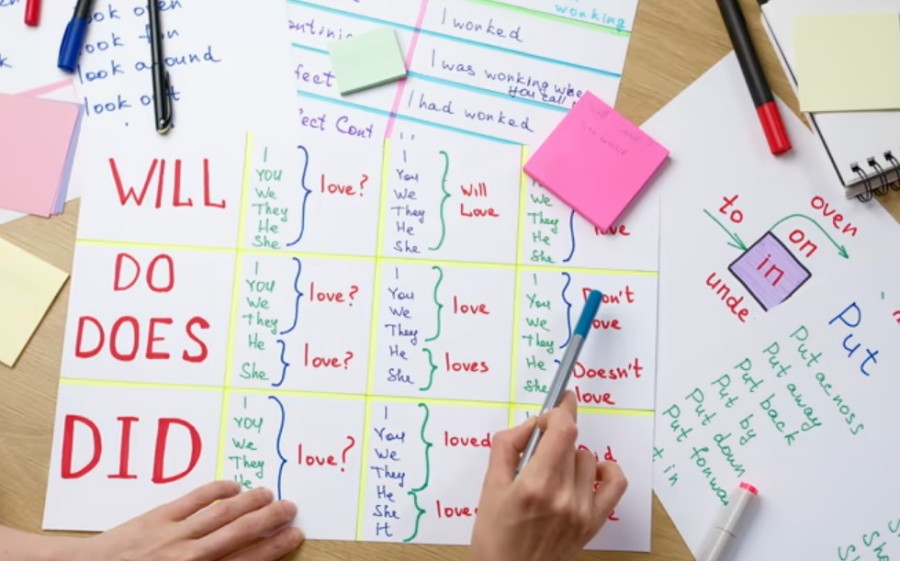 look open
look for
look around
look out
working
I worked
I was working when
you call
I had worked
WILL
I
You
We
They
He
She
love?
I
You
We
They
He
She
Will
Love
We
They
He
She
DO
DOES
I
You
We
They
He
She
love?
love?
I
You
We
They
He
She
love
loves
I
You
We
They
He
She
Don't
love
Doesn't
love
DID
I
You
We
They
He
love?
I
You
We
They
He
She
It
loved
to
over
on
in
unde
Put
Put across
Put away
Put back
Put by
Put down
Put forwa
t in